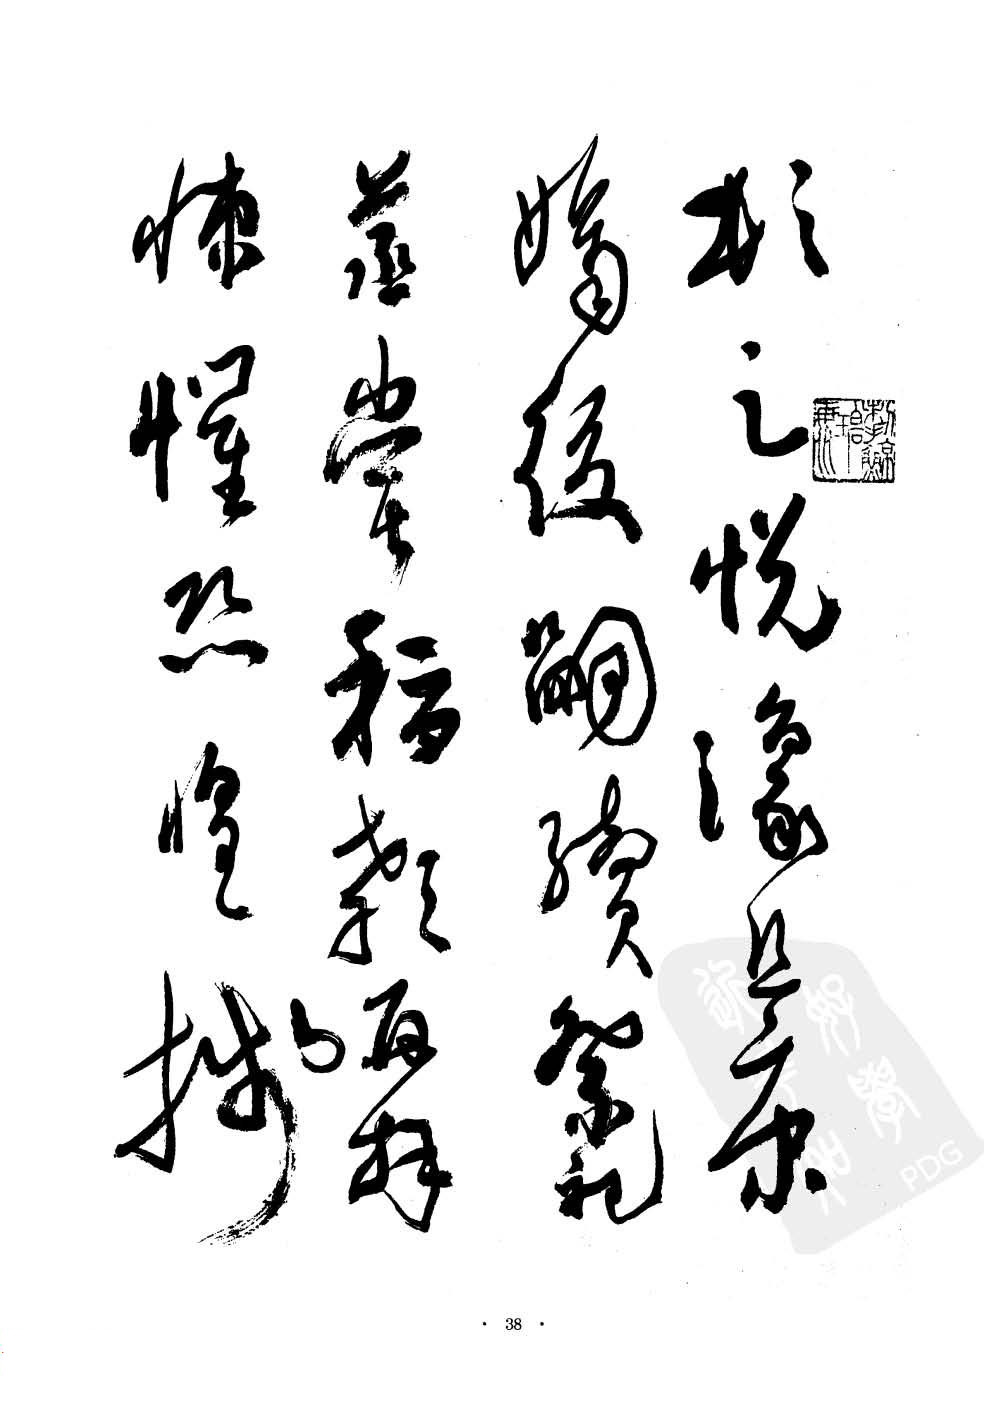 頓足悅豫且康
嫡後嗣續祭祀
蒸嘗稽顙再拜
悚懼恐惶牋
· 38 ·
PDG